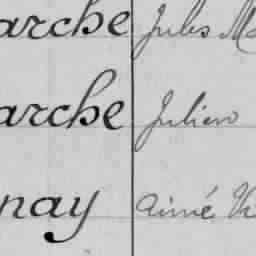 arche Jules Ma
arche Julien
nay Aimé Vi